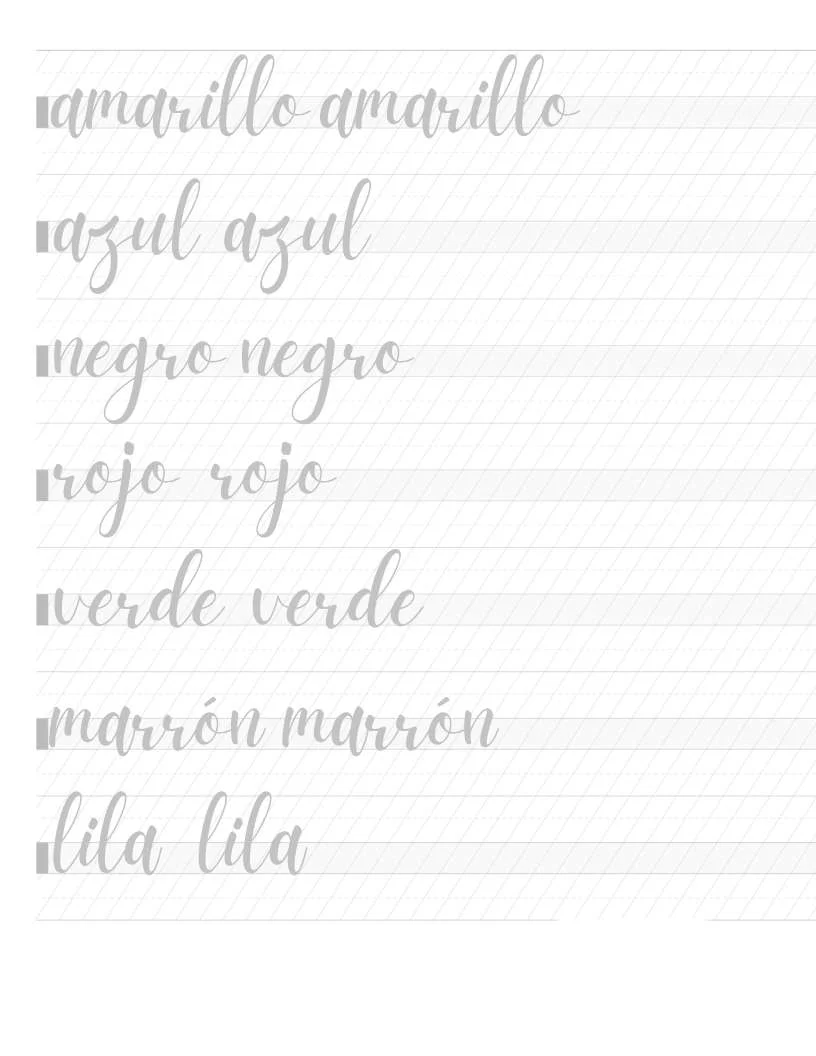 amarillo amarillo
azul azul
negro negro
rojo rojo
verde verde
marrón marrón
lila lila